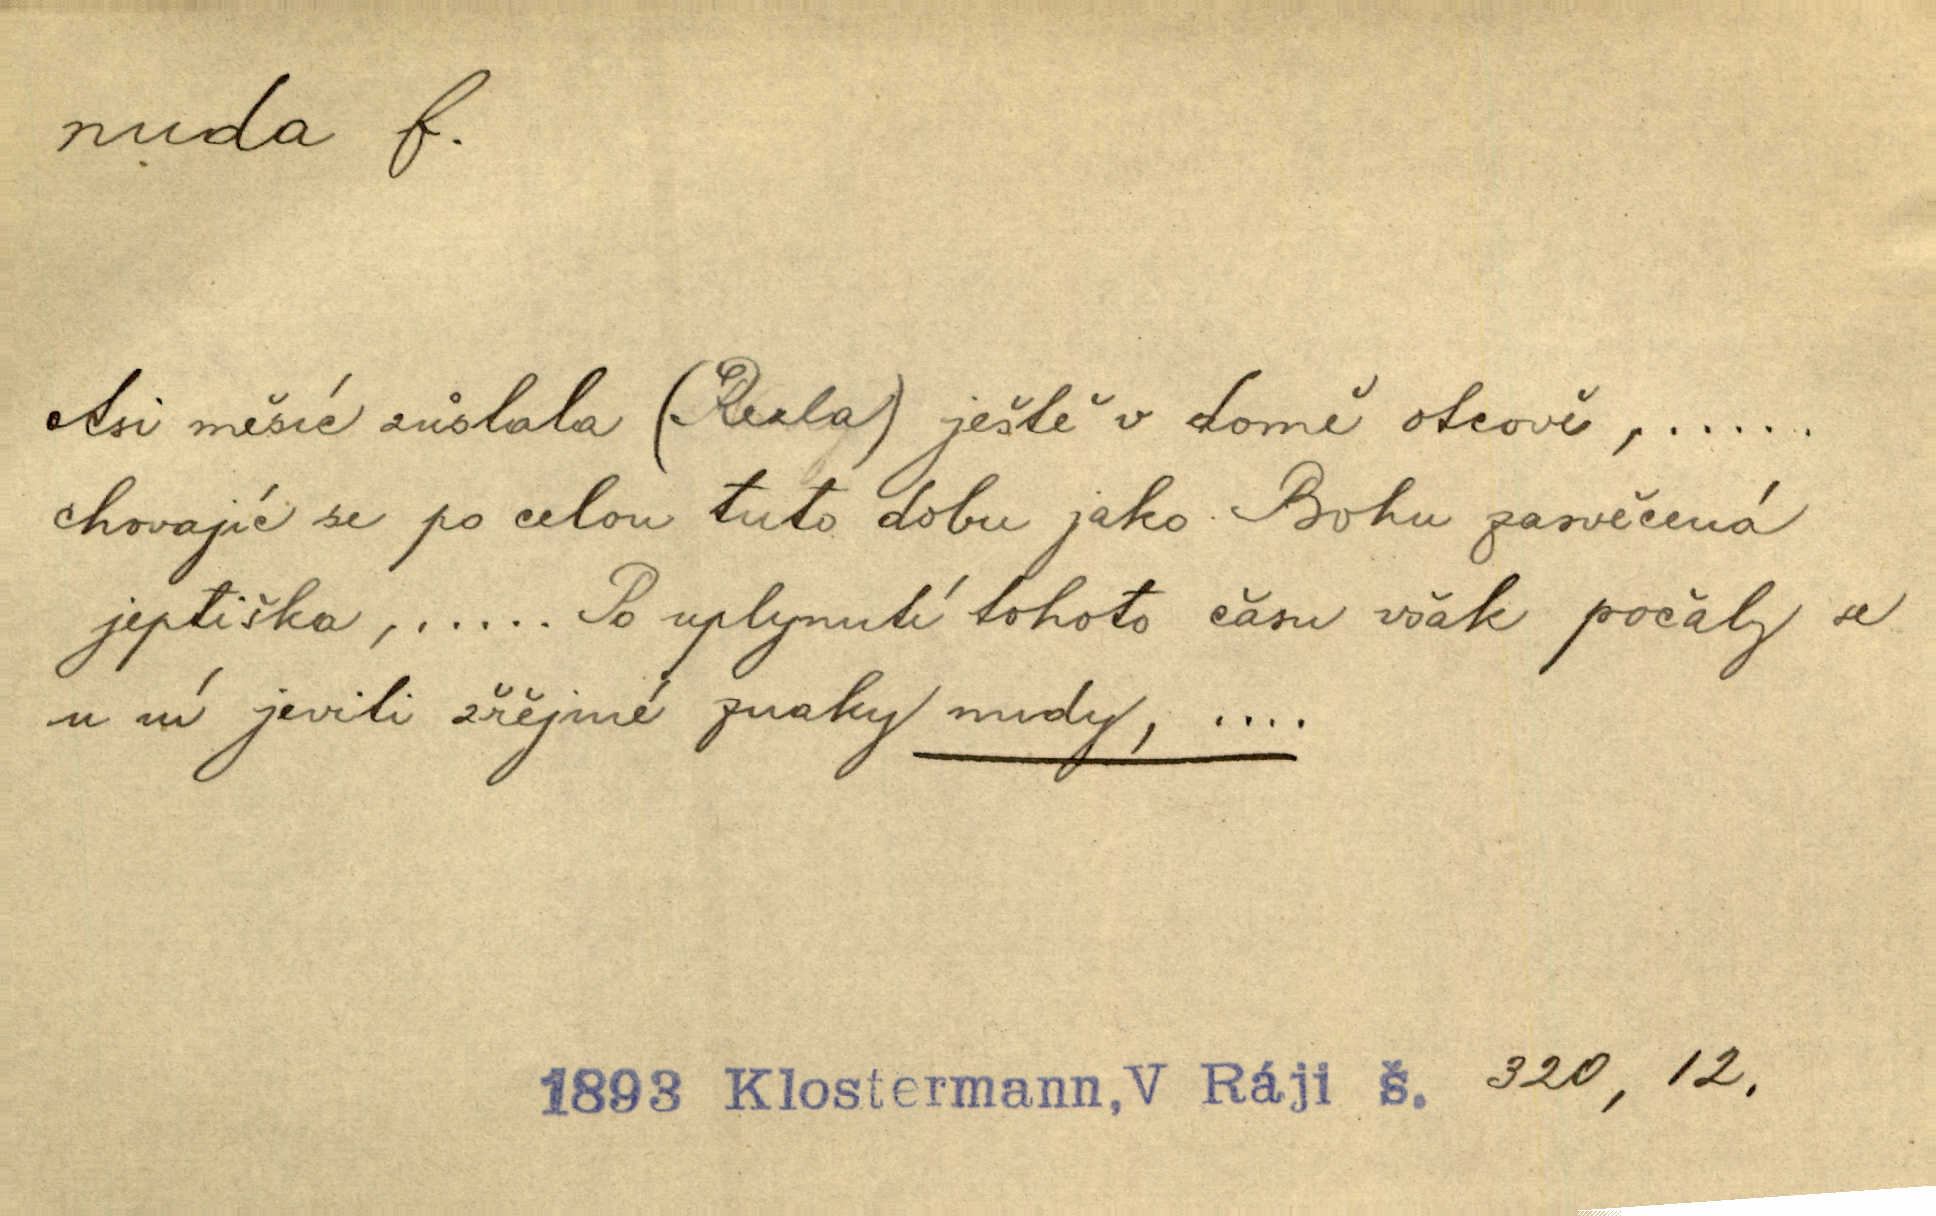 nuda f.
Asi měsíc zůstala (Rezla) ještě v domě otcově, ......
chovajíc se po celou tuto dobu jako Bohu zasvěcená
jeptiška, ...... Po uplynutí tohoto času však počaly se
u ní jeviti zřejmé znaky nudy, ....
1893 Klostermann, V Ráji š. 320, 12.